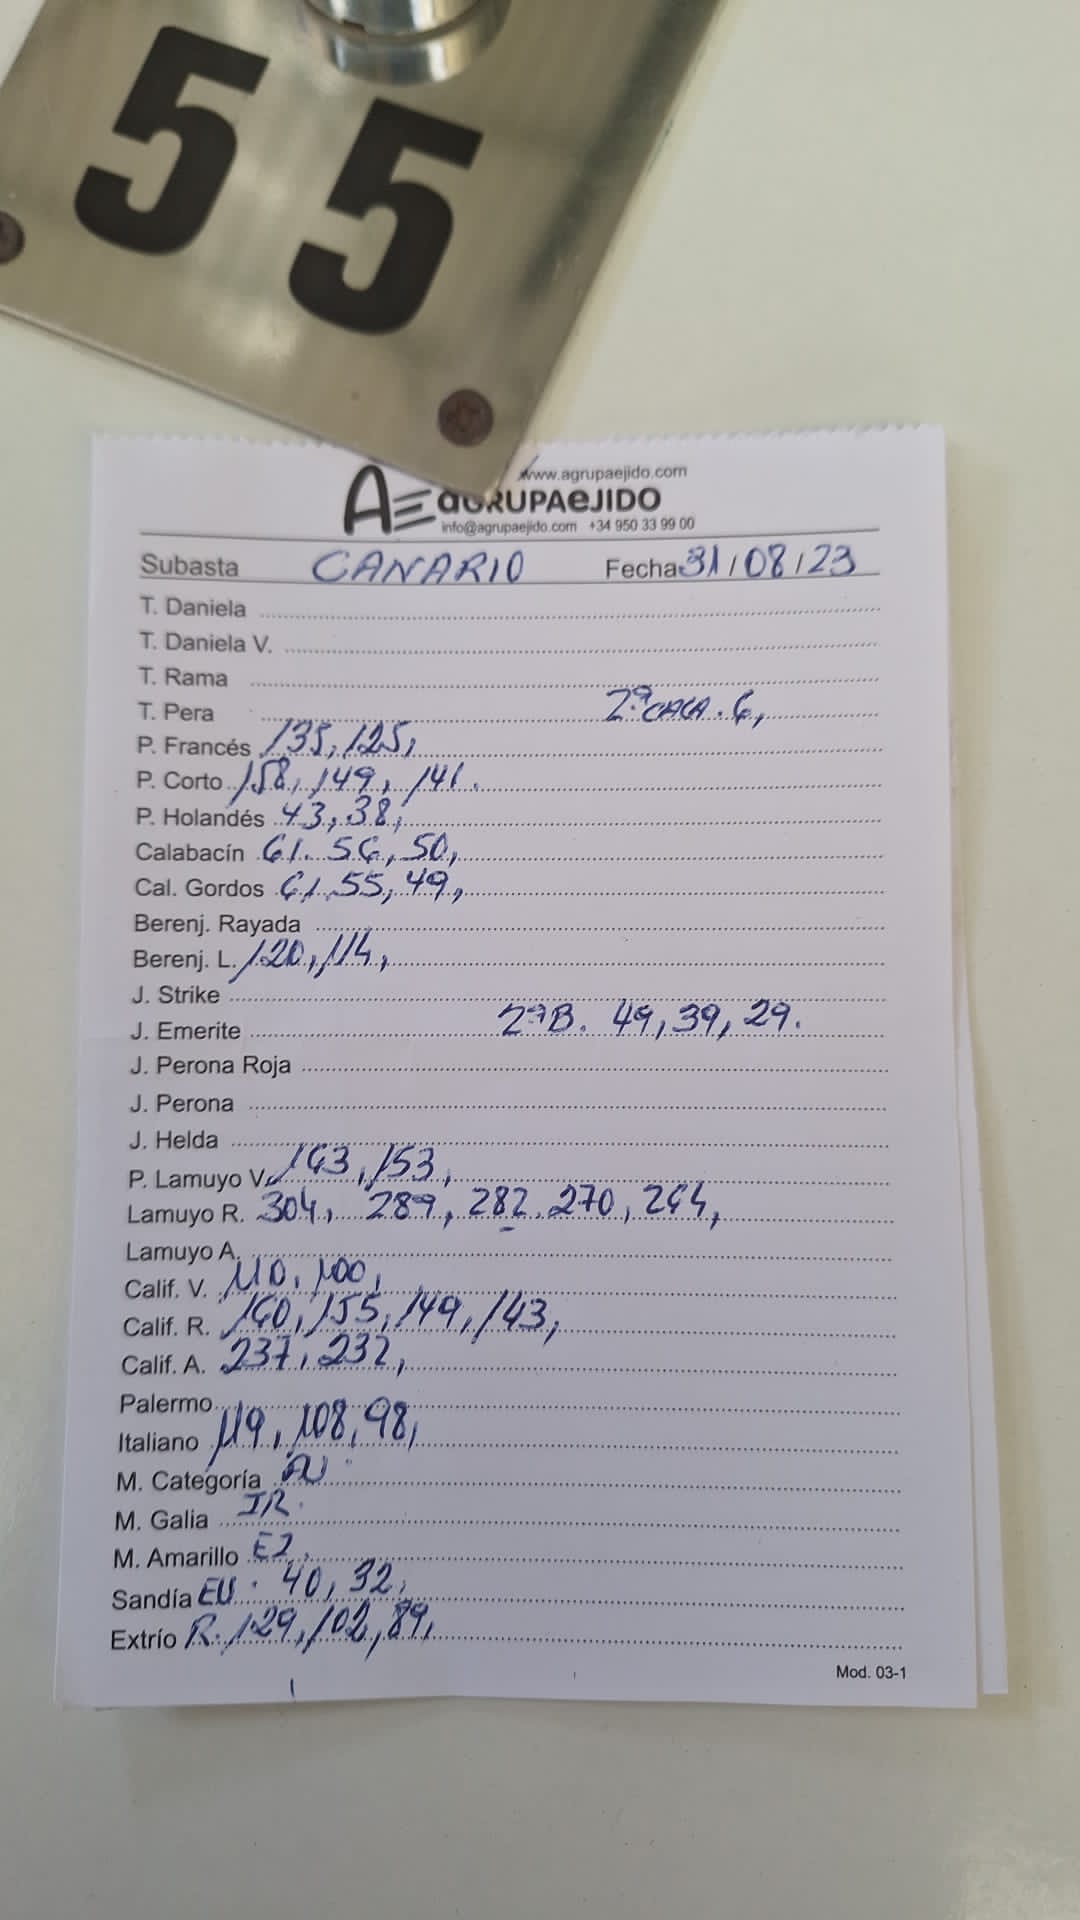 55
www.agrupaejido.com
AE aGRUPAeJIDO
info@agrupaejido.com +34 950 33 99 00
Subasta CANARIO Fecha 31/08/23
T. Daniela
T. Daniela V.
T. Rama
T. Pera 2ª CALA. 6,
P. Francés 135, 125,
P. Corto 158, 149, 141.
P. Holandés 43, 38,
Calabacín 61. 56, 50,
Cal. Gordos 61, 55, 49,
Berenj. Rayada
Berenj. L. 120, 114,
J. Strike
J. Emerite 2ªB. 49, 39, 29.
J. Perona Roja
J. Perona
J. Helda
P. Lamuyo V. 163, 153,
Lamuyo R. 304, 289, 282, 270, 264,
Lamuyo A.
Calif. V. 110, 100,
Calif. R. 160, 155, 149, 143,
Calif. A. 237, 232,
Palermo
Italiano 119, 108, 98,
M. Categoría
M. Galia IR.
M. Amarillo
Sandía EU. 40, 32,
Extrío R. 129, 102, 89,
Mod. 03-1